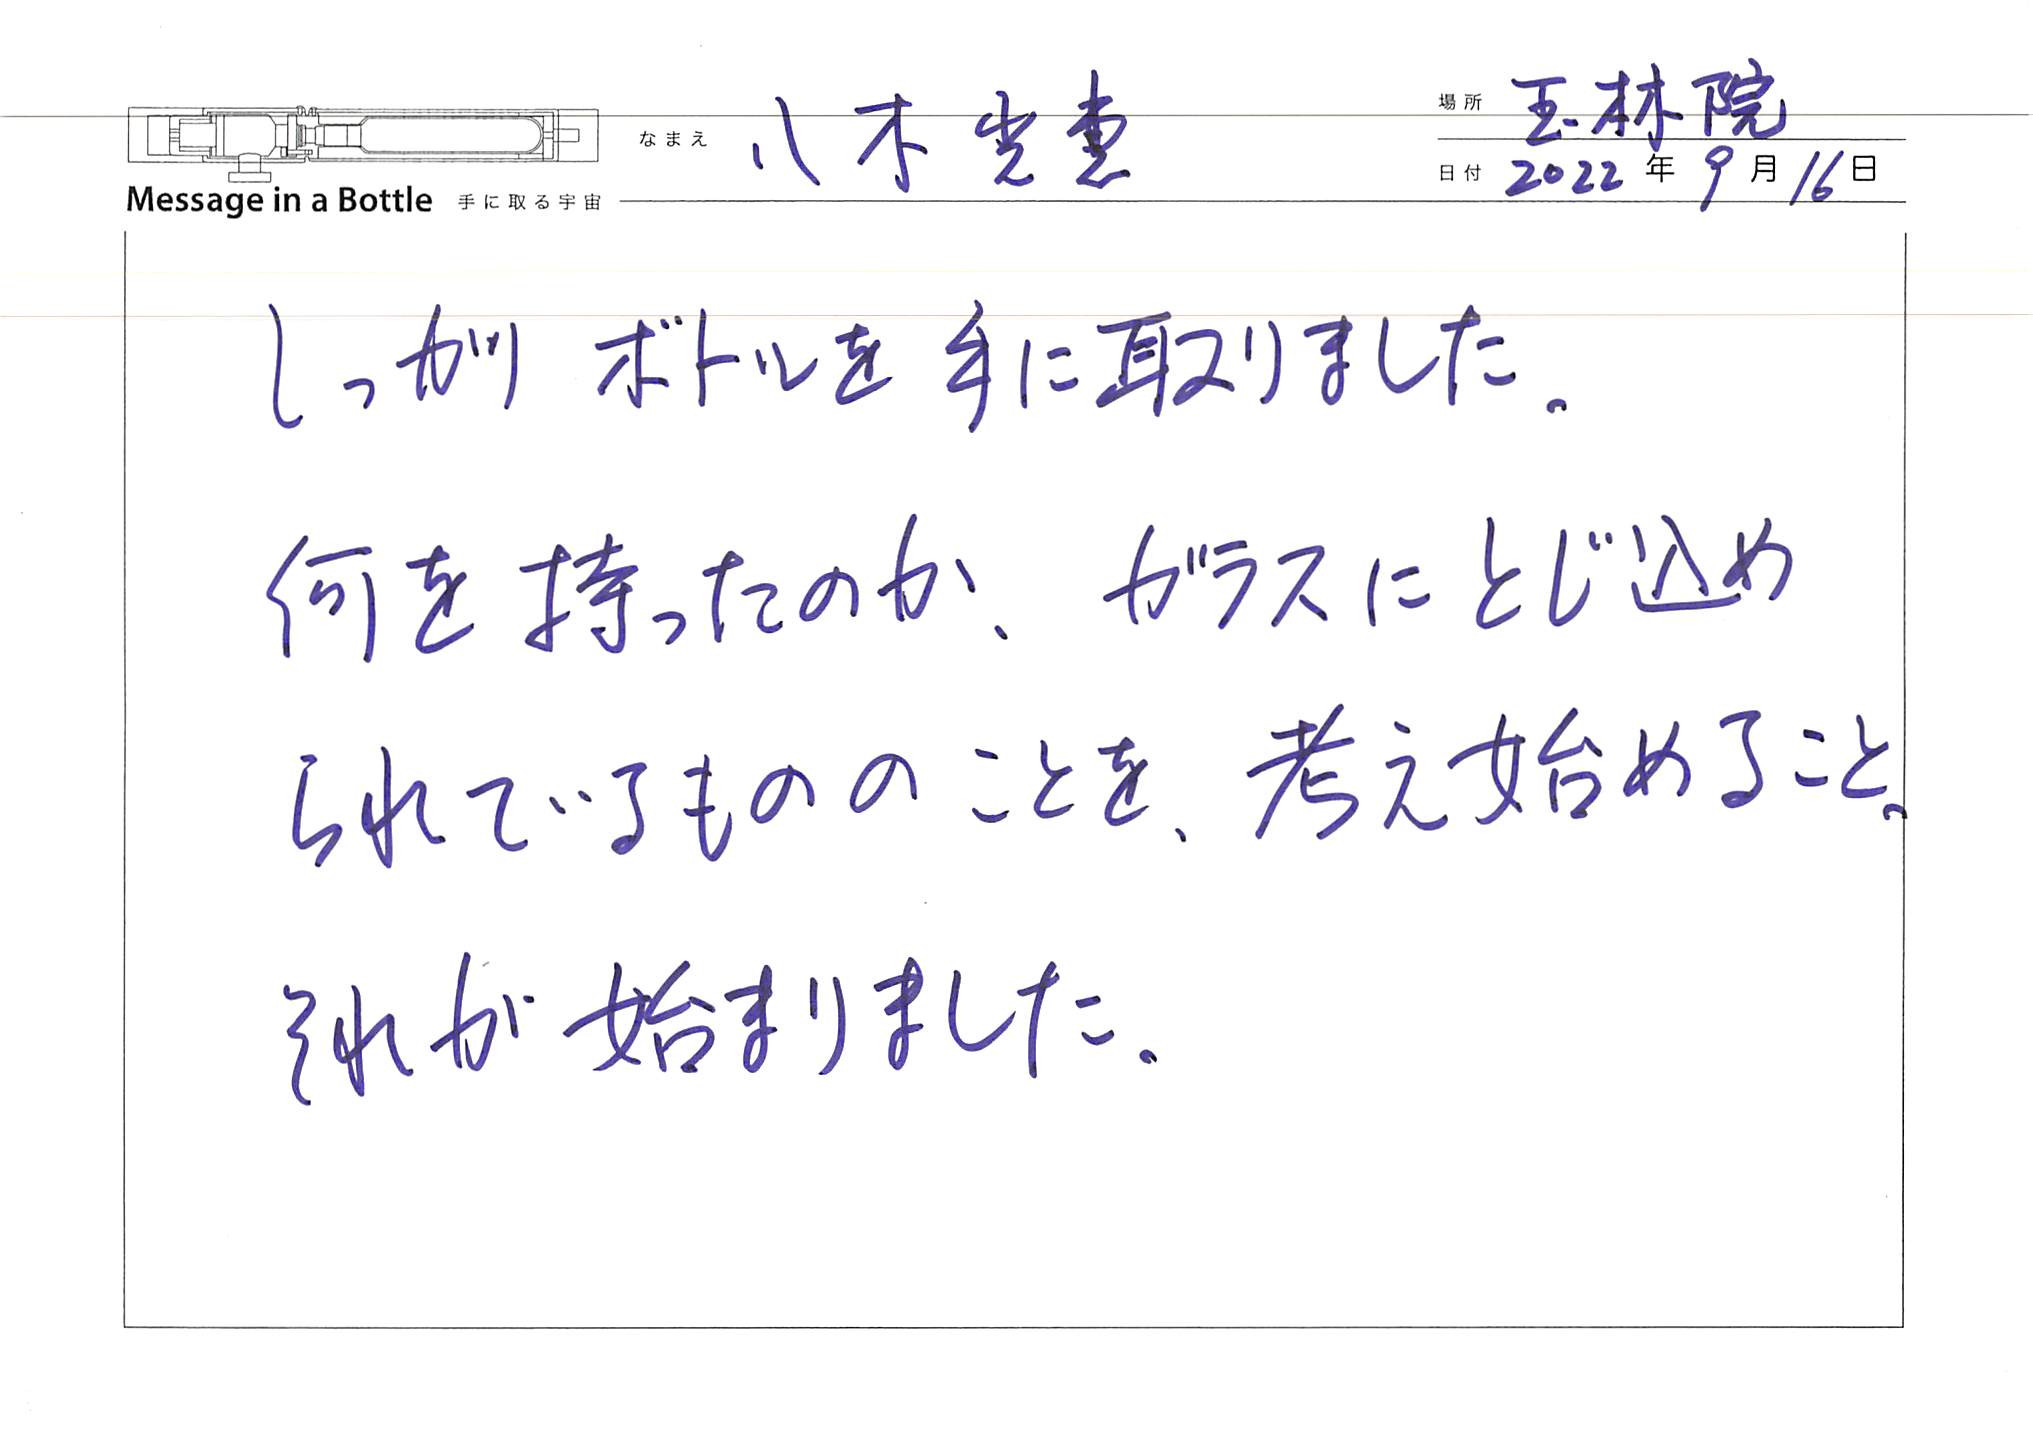 なまえ 八木光恵
場所 玉林院
日付 2022年9月16日
Message in a Bottle 手に取る宇宙
しっかり ボトルを 手に取りました。
何を持ったのか、ガラスにとじ込め
られているもののことを、考え始めること。
それが始まりました。